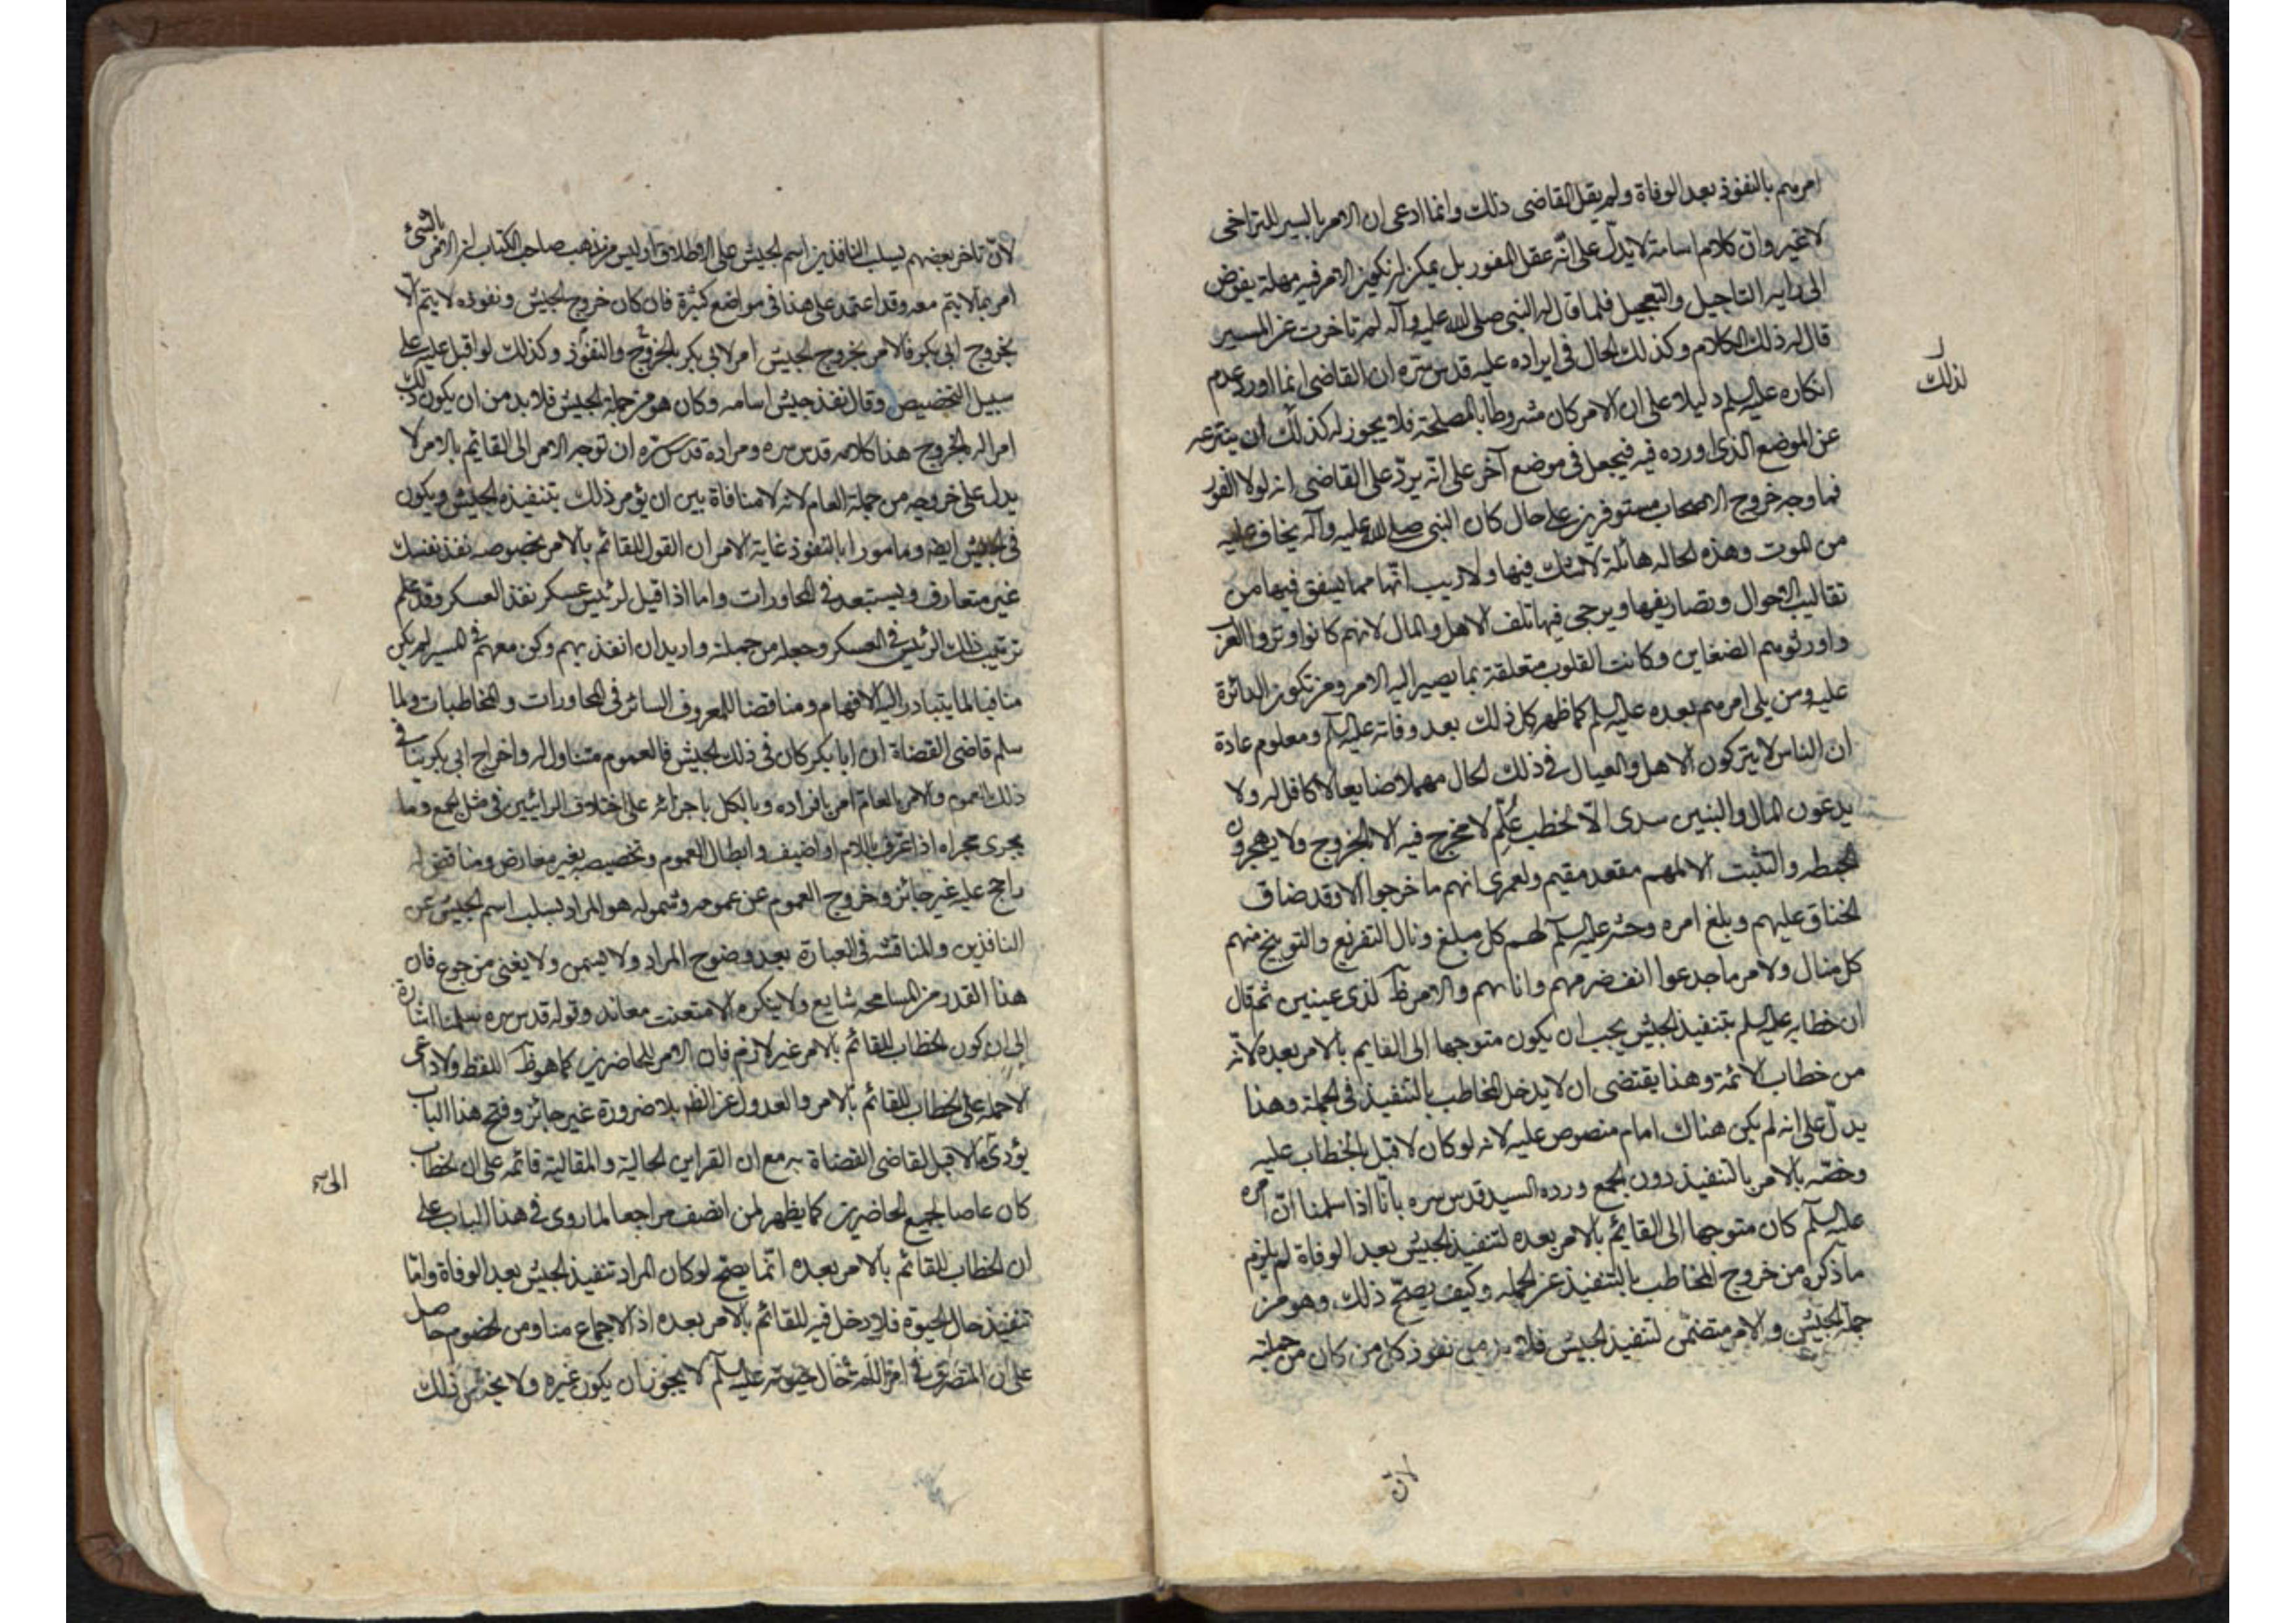 امرهم بالنفوذ بعد الوفاة ولم يقل القاضى ذلك وانما ادعى ان الامر بالسير للتراخى
لا غير وان كلام اسامة لا يدل على انه عقل الفور بل يمكن ان يكون الامر فيه مهلة يفوض
الى رايه التاجيل والتعجيل فلما قال له النبى صلى الله عليه وآله لم تاخرت عن المسير
قال له ذلك الكلام وكذلك الحال فى ايراده عليه قدس سره ان القاضى انما اورد عدم
لذلك
انكاره عليه السلم دليلا على ان الامر كان مشروطا بالمصلحة فلا يجوز له كذلك ان ينتزعه
عن الموضع الذى اورده فيه فيجعل فى موضع آخر على انه يرد على القاضى انه لولا الفور
فما وجه خروج الاصحاب مستوفزين على حال كان النبى صلى الله عليه وآله يخاف عليه
من الموت وهذه الحاله هائلة لا شك فيها ولا ريب انها مما يتفق فيها من
تقاليب الاحوال وتصاريفها ويرجى فيها تلف الاهل والمال لانهم كانوا وتروا العرب
واورثوهم الضغاين وكانت القلوب متعلقة بما يصير اليه الامر ومن تكون الدائرة
عليه ومن يلى امرهم بعده عليه السلم كما ظهر كل ذلك بعد وفاته عليه السلم ومعلوم عادة
ان الناس لا يتركون الاهل والعيال فى ذلك الحال مهملا ضايعا لا كافل له ولا
يدعون المال والبنين سدى الا لخطب علم لا مخرج فيه الا بالخروج ولا يهجرون
والتثبت الا لمهم مقعد مقيم ولعمرى انهم ما خرجوا الا وقد ضاق
الخناق عليهم وبلغ امره وحثه عليه السلم لهم كل مبلغ ونال التقريع والتوبيخ منهم
كل منال ولامر ما جدعوا انف والامر ظ لذى عينين ثم قال
ان خطابه عليه السلم بتنفيذ الجيش يجب ان يكون متوجها الى القايم بالامر بعده لانه
من خطاب الائمة وهذا يقتضى ان لا يدخل المخاطب بالتنفيذ فى الجملة وهذا
يدل على انه لم يكن هناك امام منصوص عليه لانه لو كان لاقبل بالخطاب عليه
وخصه بالامر بالتنفيذ دون الجمع ورده السيد قدس سره بانا اذا سلمنا ان امره
عليه السلم كان متوجها الى القايم بالامر بعده لتنفيذ الجيش بعد الوفاة لم يلزم
ما ذكره من خروج المخاطب بالتنفيذ عن الجمله وكيف يصح ذلك وهو من
جملة الجيش والامر متضمن لتنفيذ الجيش فلا بد من نفوذ كل من كان من جملته
لان
لان تاخر بعضهم يسلب النافذين اسم الجيش على الاطلاق اوليس من مذهب صاحب الكتاب ان الامر بالشئ
امر بما لا يتم معه وقد اعتمد على هذا فى مواضع كثيرة فان كان خروج الجيش ونفوذه لا يتم الا
بخروج ابى بكر فالامر بخروج الجيش امر لابى بكر بالخروج والنفوذ وكذلك لو اقبل عليه على
سبيل التخصيص وقال نفذ جيش اسامه وكان هو من جملة الجيش فلا بد من ان يكون ذلك
امرا له بالخروج هذا كلامه قدس سره ومراده قدس سره ان توجه الامر الى القايم بالامر لا
يدل على خروجه من جملة العام لانه لا منافاة بين ان يؤمر ذلك بتنفيذه الجيش ويكون
فى الجيش ايضه ومامورا بالنفوذ غاية الامر ان القول للقائم بالامر بخصوصه نفذ نفسك
غير متعارف ويستبعد فى المحاورات واما اذا قيل لرئيس عسكر نفذ العسكر وقد علم
ترتيب ذلك الرئيس فى العسكر وجعله من جملته واريد ان انفذ بهم وكن معهم فى المسير لم يكن
منافيا لما يتبادر اليه الافهام ومناقضا للمعروف السائر فى المحاورات والمخاطبات ولما
سلم قاضى القضاة ان ابا بكر كان فى ذلك الجيش فالعموم متناول له واخراج ابى بكر ينافى
ذلك العموم والامر بالعام امر بافراده وبالكل باجزائه على اختلاف الرائيين فى مثل الجمع وما
يجرى مجراه اذا عرف باللام او اضيف وابطال العموم وتخصيصه بغير معارض ومناقض له
راجح عليه غير جائز وخروج العموم عن عمومه وشموله هو المراد بسلب اسم الجيش عن
النافذين والمناقشه فى العبارة بعد وضوح المراد ولا يسمن ولا يغنى من جوع فان
هذا القدر من المسامحه شايع ولا ينكره الا متعنت معاند وقوله قدس سره سلمنا اشارة
الى ان كون الخطاب للقائم بالامر غير لازم فان الامر للحاضرين كما هو ظ اللفظ ولا داعى
لاحمله على الخطاب للقائم بالامر والعدول عن الظهر بلا ضرورة غير جائز وفتح هذا الباب
يؤدى ما لا قبل لقاضى القضاة به مع ان القراين الحالية والمقالية قائمه على ان الخطاب
كان عاصا لجميع الحاضرين كما يظهر لمن انصف مراجعا لما روى فى هذا الباب على
ان الخطاب للقائم بالامر بعده انما يصح لو كان المراد تنفيذ الجيش بعد الوفاة واما
تنفيذ حال الحيوة فلا دخل فيه للقائم بالامر بعده اذ الاجماع منا ومن الخصوم حاصل
على ان المتصرف فى حال حيوته عليه السلم لا يجوز ان يكون غيره ولا يخدش ذلك